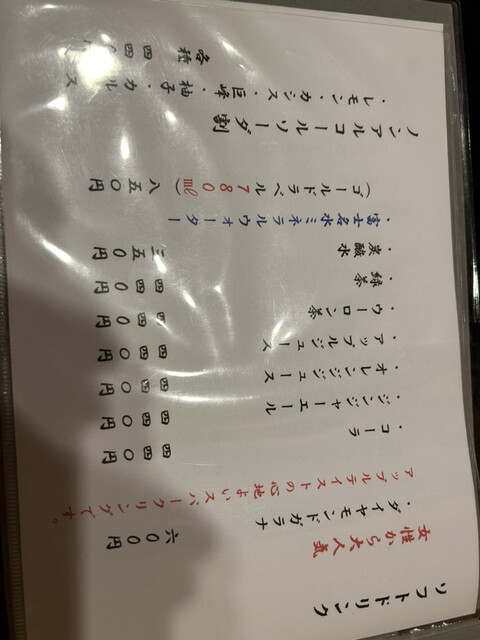 ソフトドリンク
女性から大人気
・ダイヤモンドガラナ 六〇〇円
アップルテイストの心地よいスパークリングです。
・コーラ 四四〇円
・ジンジャーエール 四四〇円
・オレンジジュース 四四〇円
・アップルジュース 四四〇円
・ウーロン茶 四四〇円
・緑茶 四四〇円
・炭酸水 三五〇円
・富士名水ミネラルウォーター
(ゴールドラベル780㎖) 八五〇円
ノンアルコールソーダ割
・レモン・カシス・巨峰・柚子・カルピス
各種 四四〇円